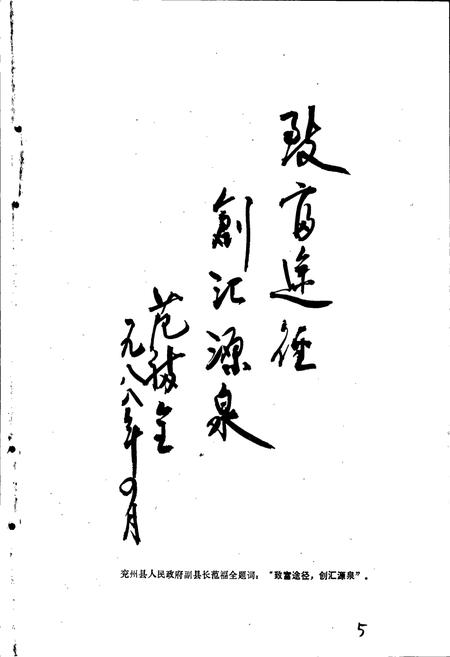 致富途径
創汇源泉
范福全
一九八八年四月
兖州县人民政府副县长范福全题词：“致富途径，创汇源泉”。
5